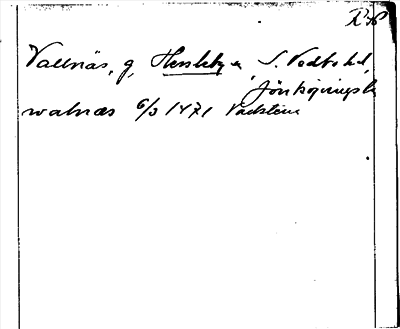 Vallnäs, g, Hessleby sn S. Vedbo hd,
Jönköpings l.
walnæs 6/3 1471 Vadstena